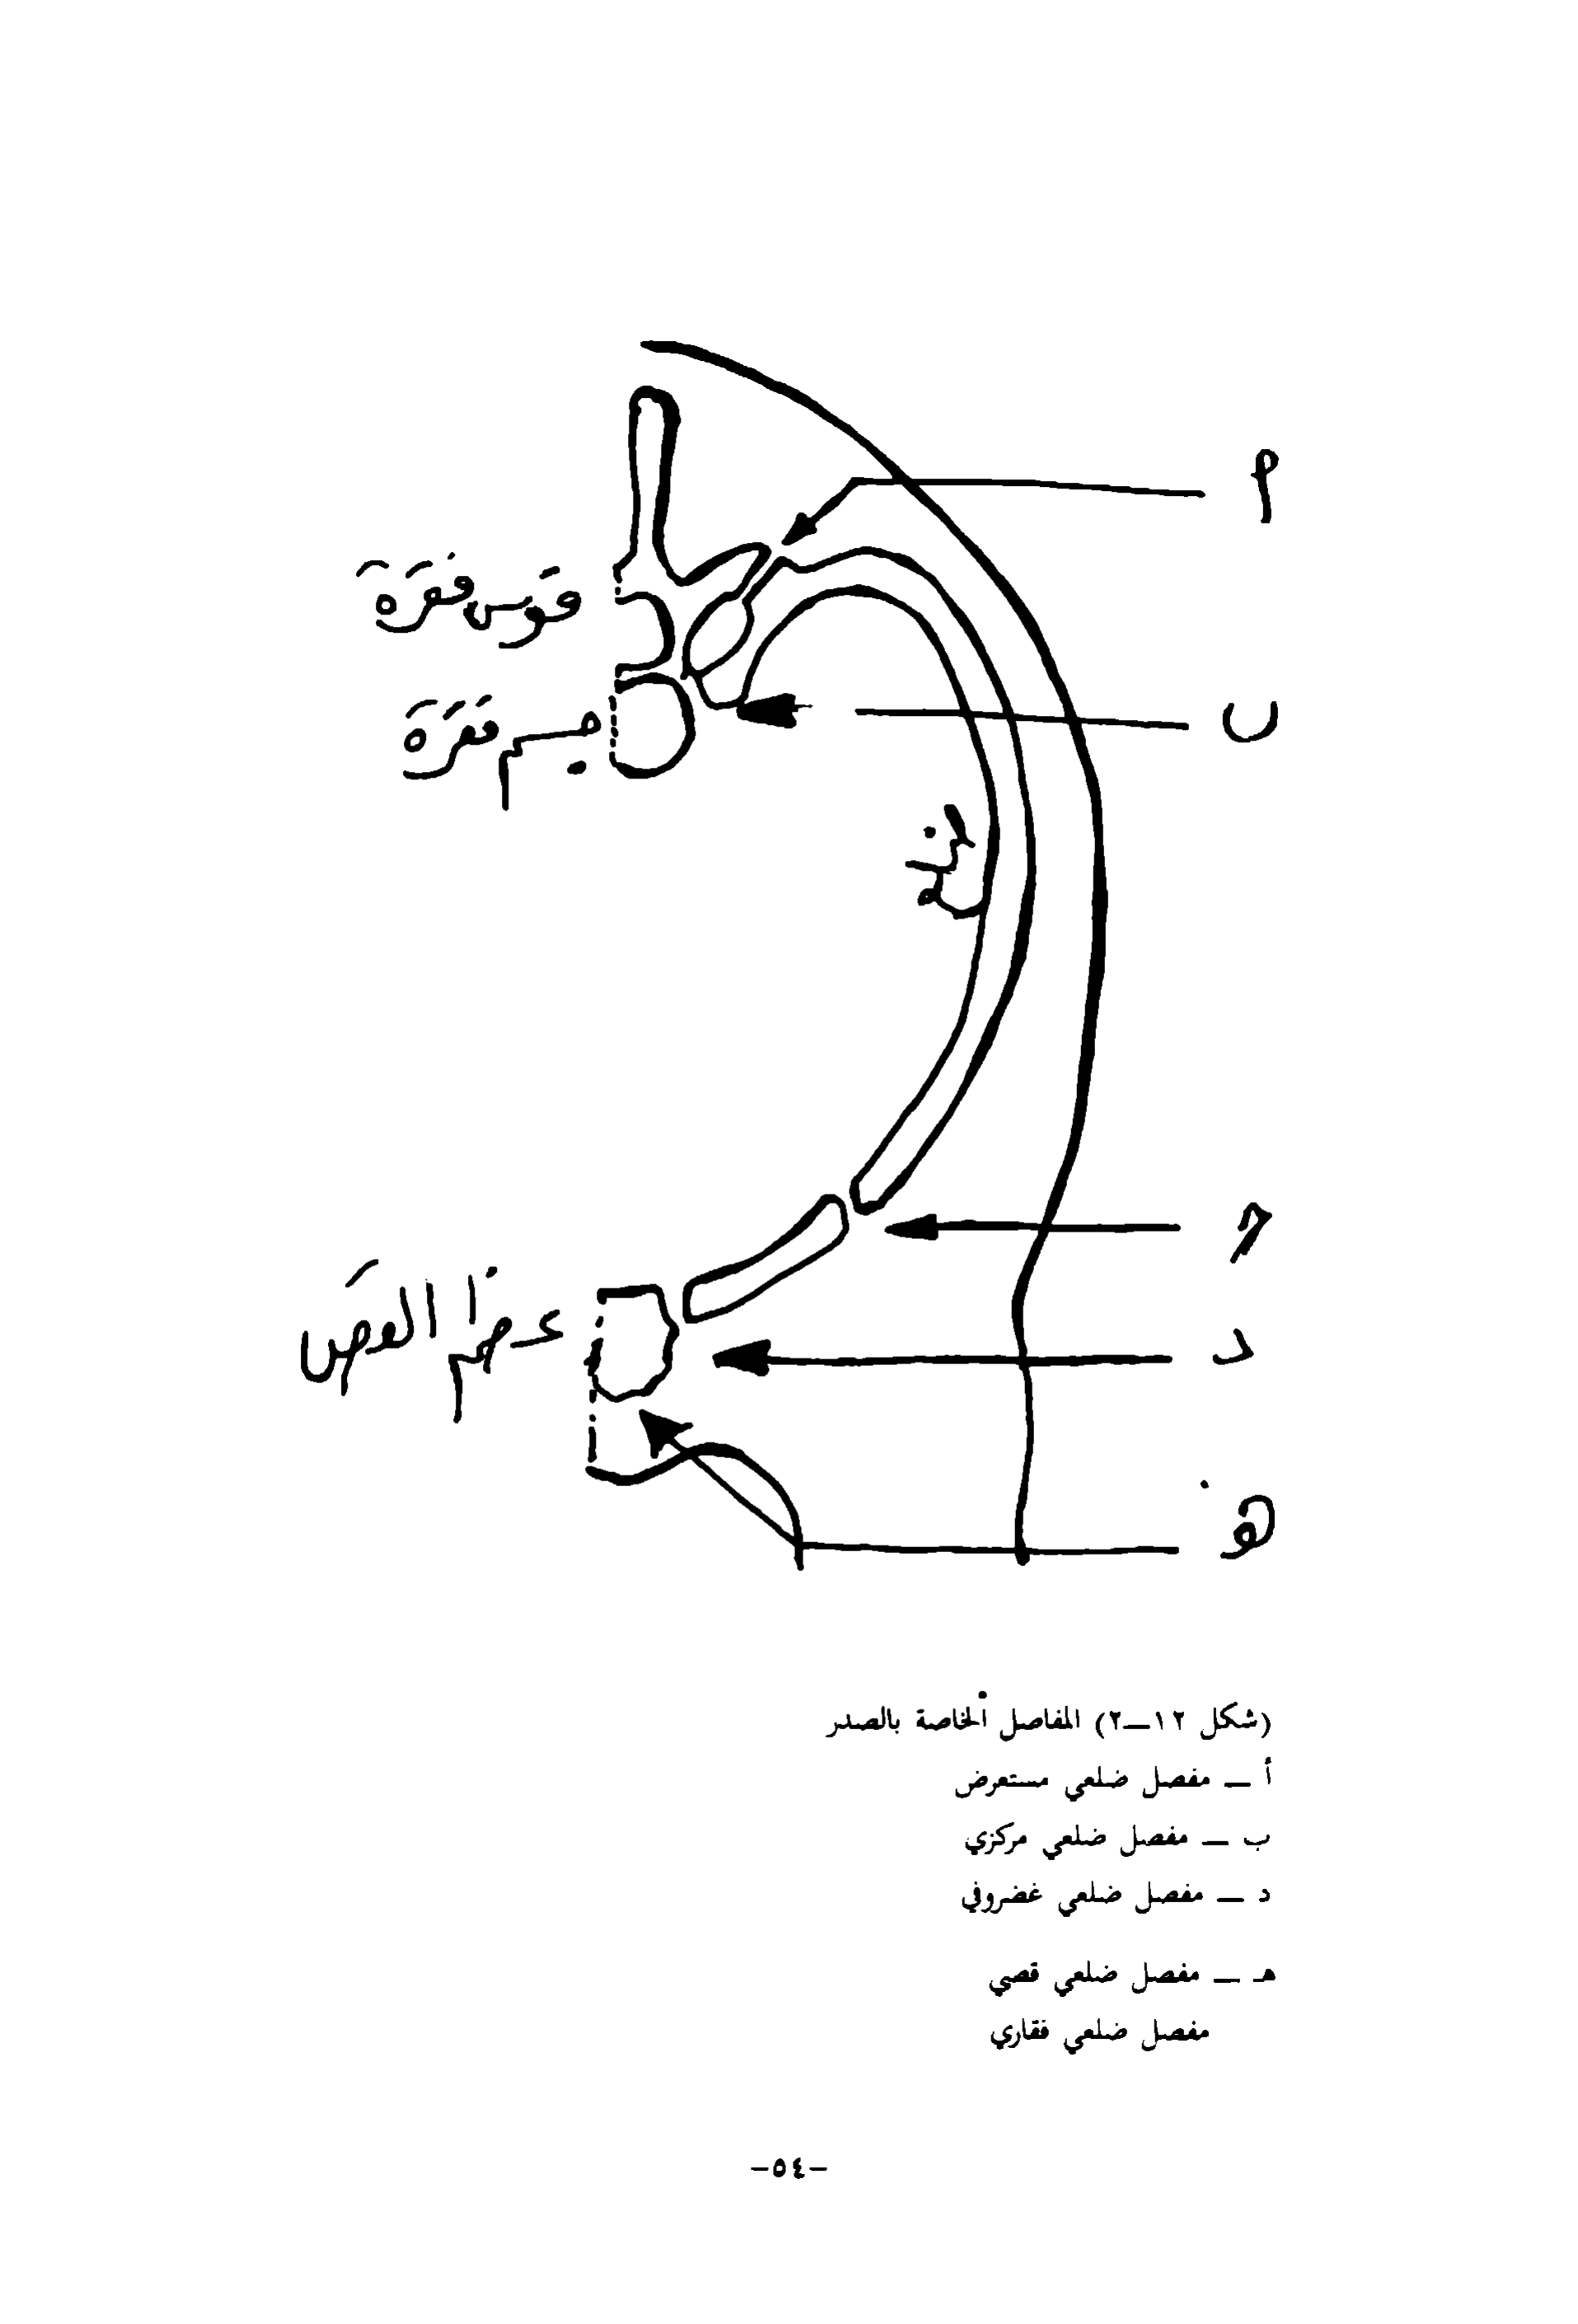 أ
قوس فقرة
جسم فقرة
ب
ضلع
د
عظم القص
هـ
(شكل ١٢–٢) المفاصل الخاصة بالصدر
أ – مفصل ضلعي مستعرض
ب – مفصل ضلعي مركزي
د – مفصل ضلعي غضروفي
هـ – مفصل ضلعي قصي
مفصل ضلعي فقاري
-٥٤-